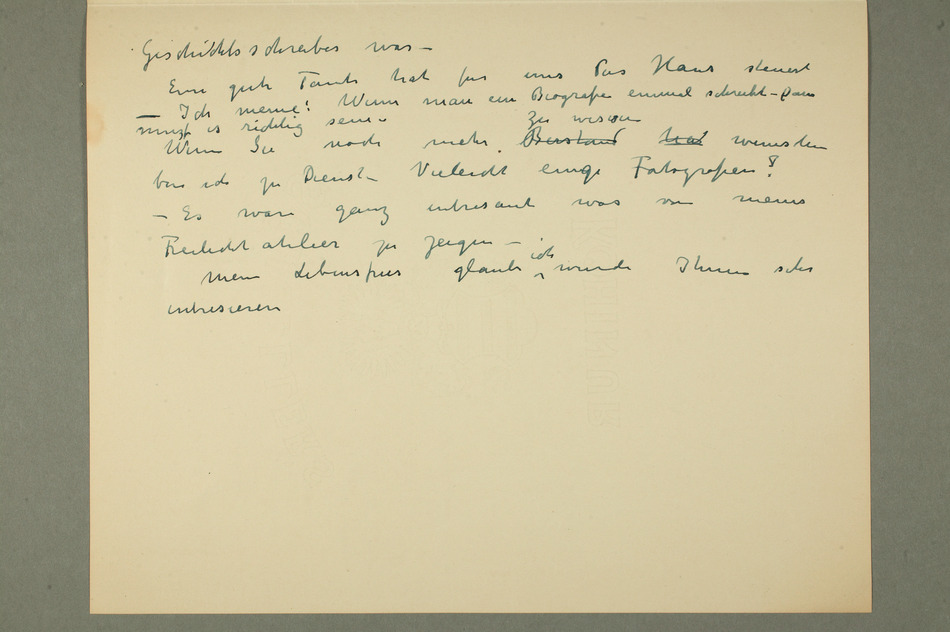 Geschichtsschreiber war –
Eine gute Tante hat für uns das Haus steuert
– Ich meine! Wenn man ein Biografie einmal schreibt – dan
muss es richtig sein –
zu wissen
Wenn Sie noch mehr, hat wünschen
bin ich zu Dienst – Vieleicht einige Fotografien?
– Es ware ganz intresant was von meine
Freilicht atelier zu zeigen –
ich
Mein Lebensfries glaube wurde Ihnen sehr
intresieren